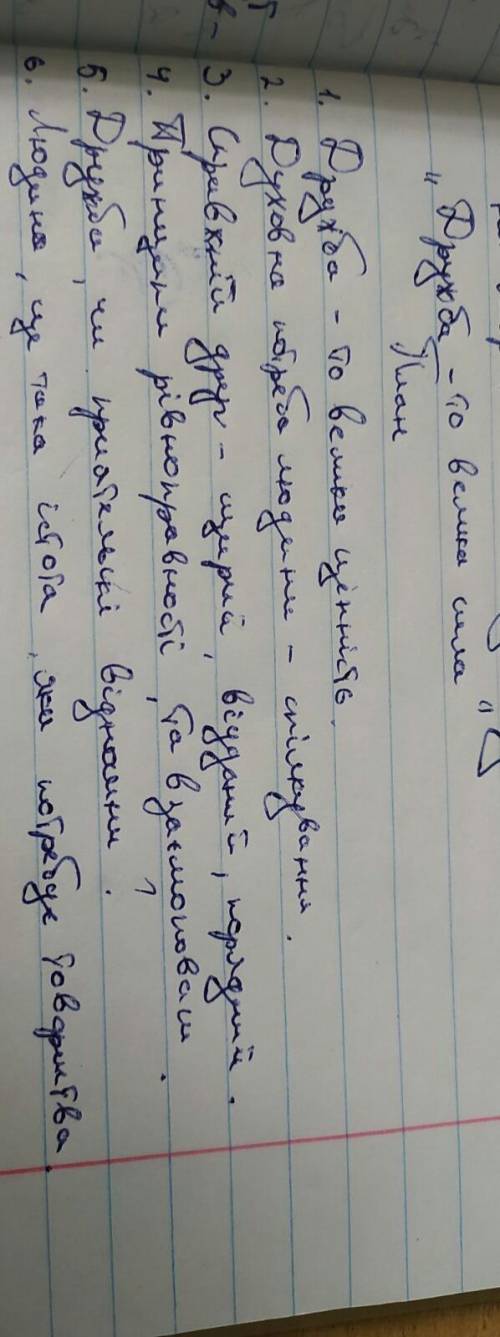 "Дружба - то велика сила"
План
1. Дружба - то велика цінність.
2. Духовна потреба людини - спілкування.
3. Справжній друг - щирий, відданий, порядний.
4. Принципи рівноправності, та взаємоповаги.
5. Дружба, чи приятельські відносини?
6. Людина, це така істота, яка потребує товариства.